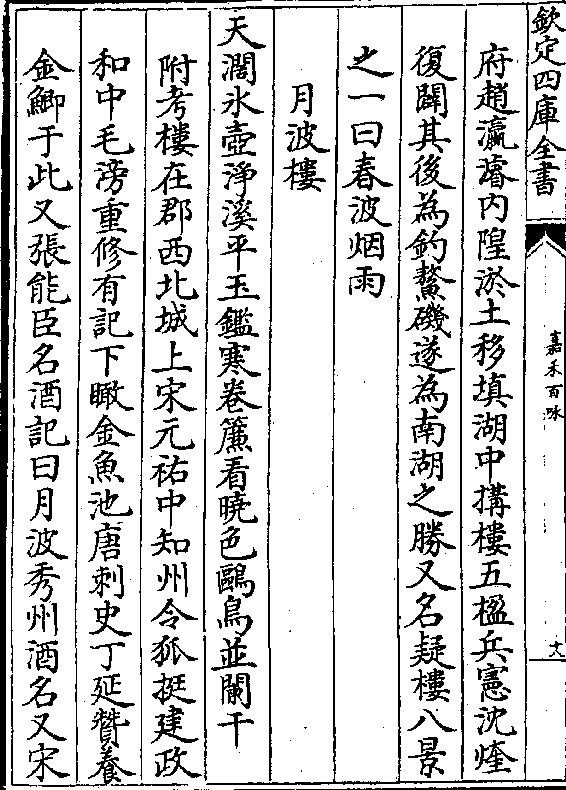 欽定四庫全書
嘉禾百咏
十八
府趙瀛濬内隍淤土移填湖中搆樓五楹兵憲沈煃
復闢其後為釣鰲磯遂為南湖之勝又名疑樓八景
之一曰春波烟雨
月波樓
天濶氷壺淨溪平玉鑑寒卷簾看曉色鷗鳥並闌干
附考樓在郡西北城上宋元祐中知州令狐挺建政
和中毛滂重修有記下瞰金魚池唐刺史丁延贊養
金鯽于此又張能臣名酒記曰月波秀州酒名又宋